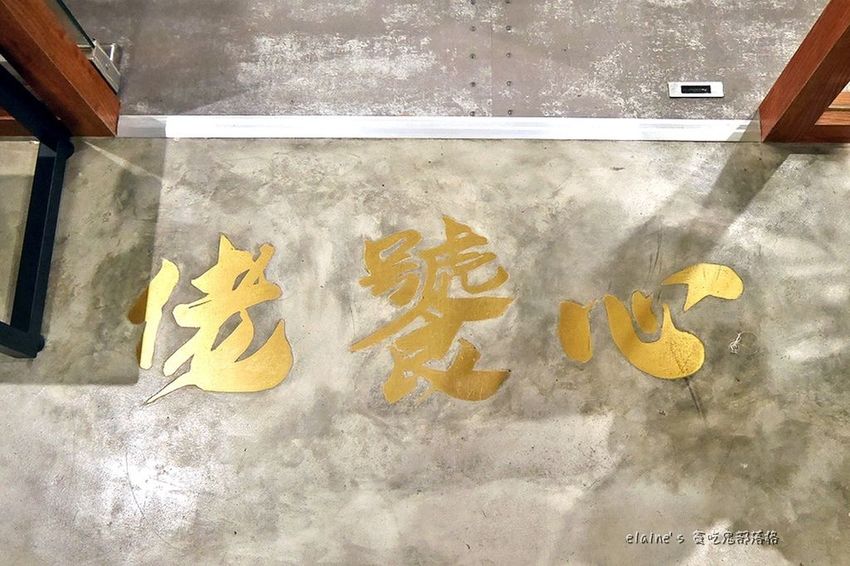 佬饕心
elaine's 貪吃鬼部落格